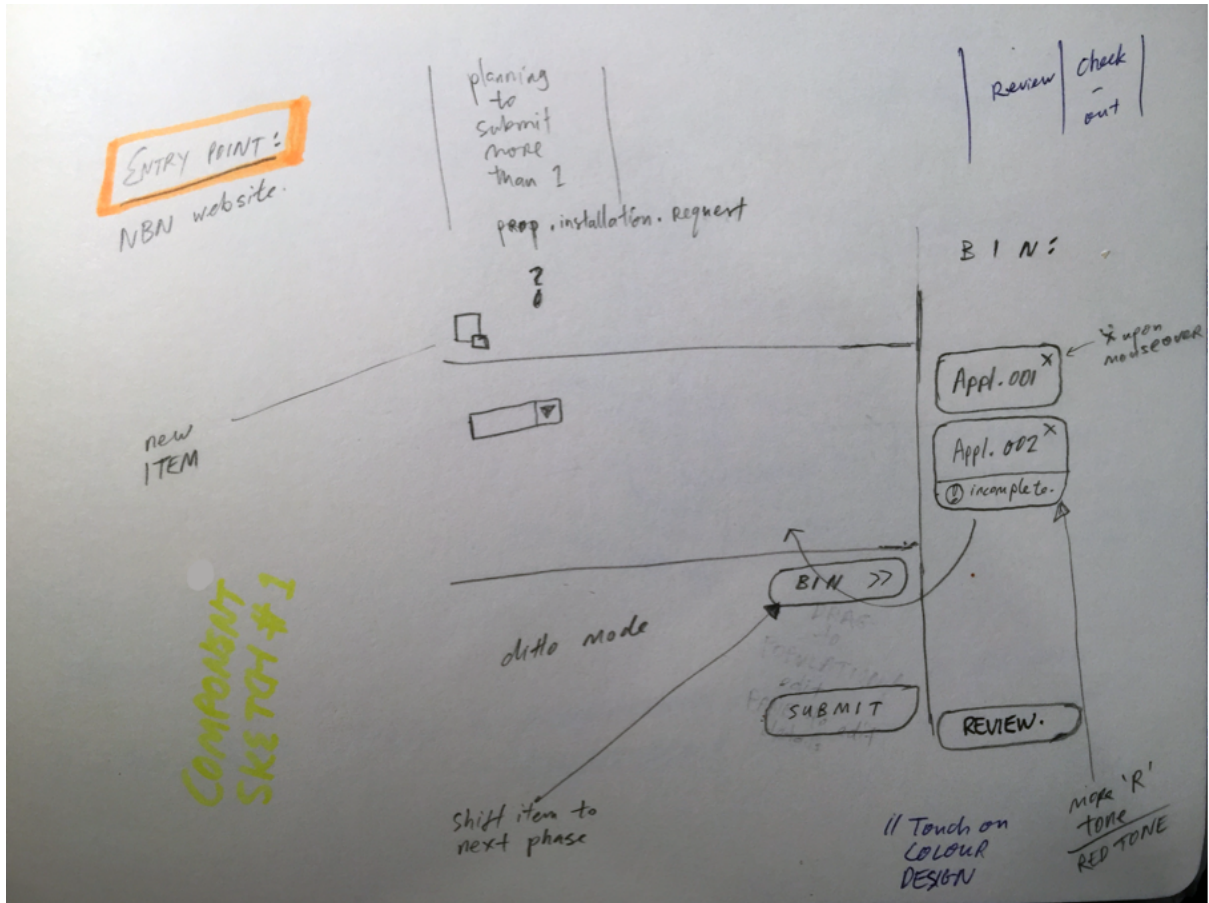 ENTRY POINT:
NBN website.
planning
to
submit
more
than 1
prop.installation.Request
?
Review
Check
-
out
BIN:
new
ITEM
Appl.001 X
"x" upon
mouseover
Appl. 002 X
! incomplete.
BIN >>
ditto mode
SUBMIT
REVIEW.
COMPONENT
SKETCH #1
shift item to
next phase
// Touch on
COLOUR
DESIGN
more 'R'
tone
RED TONE